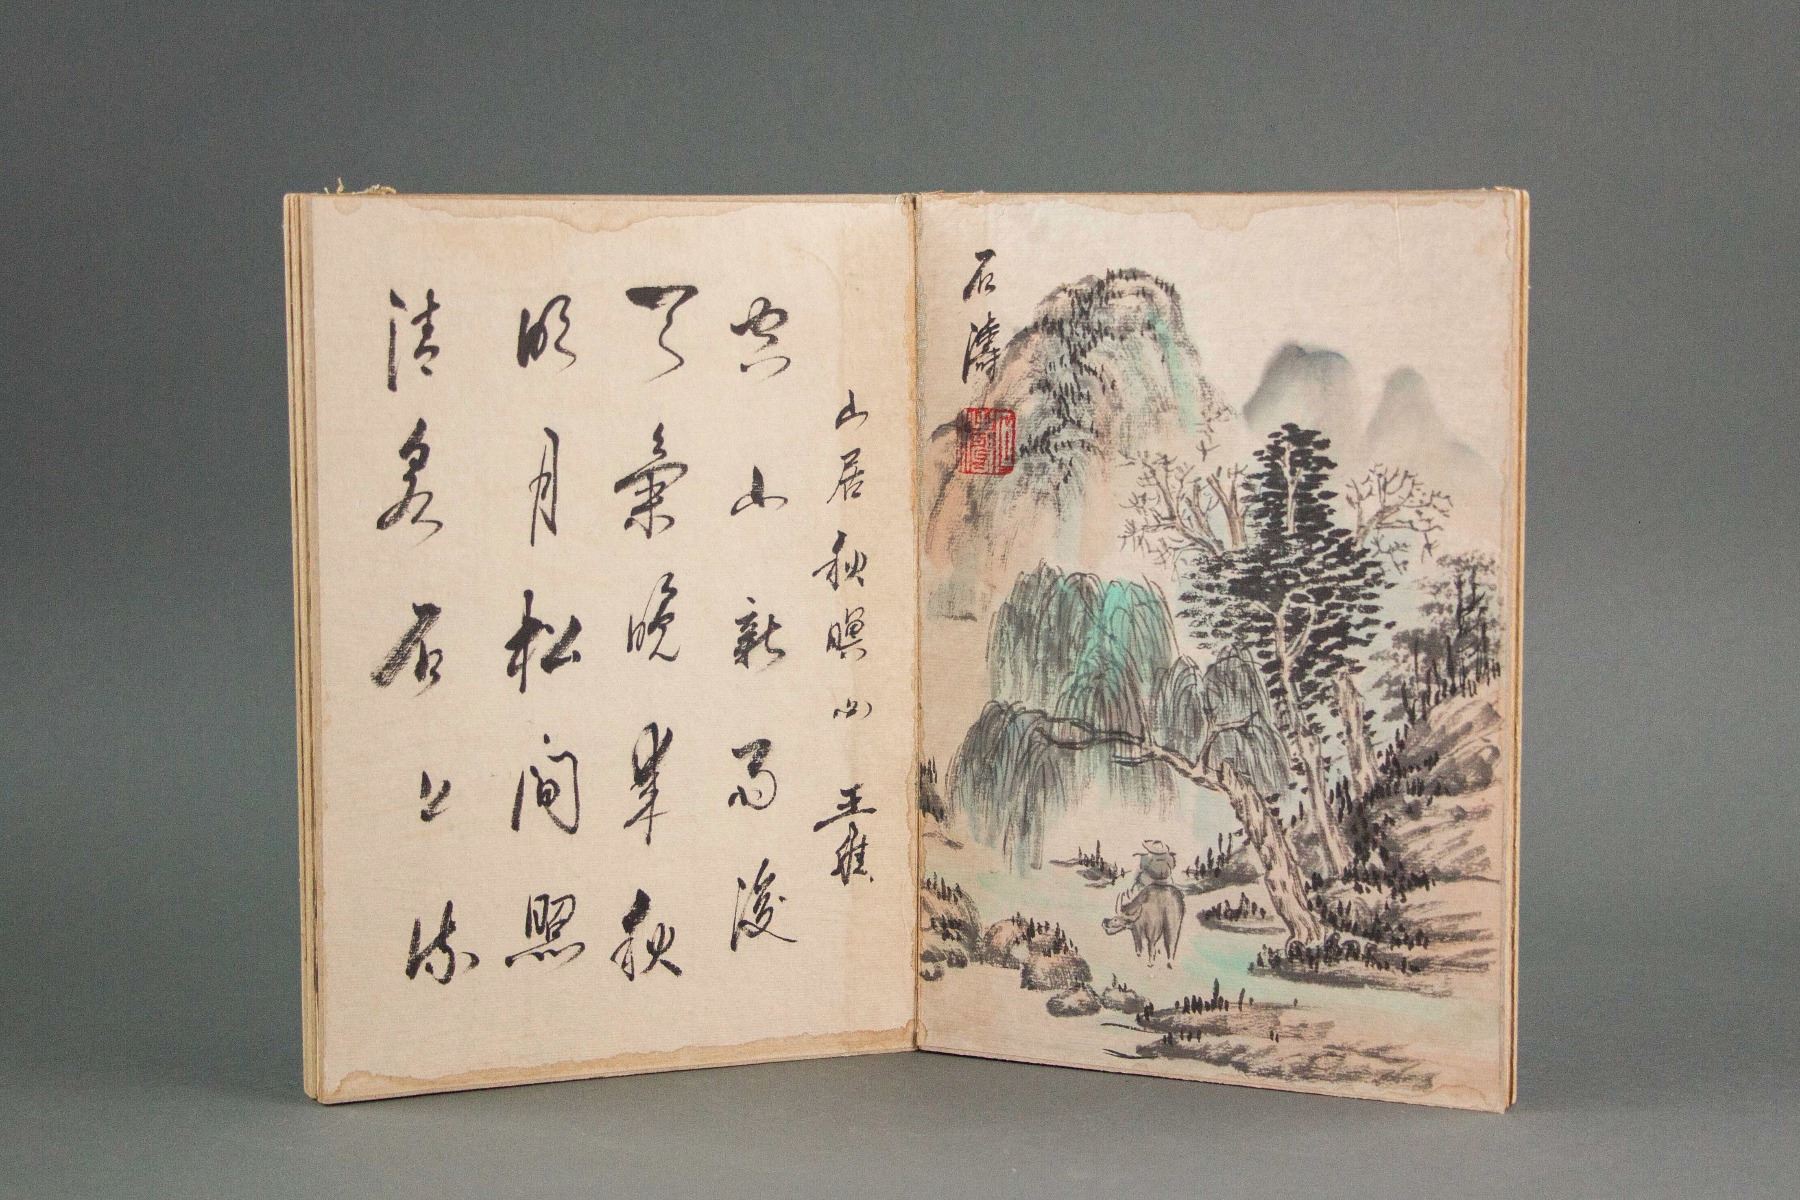 石濤
山居秋暝 王維
空山新雨後
天氣晚來秋
明月松間照
清泉石上流